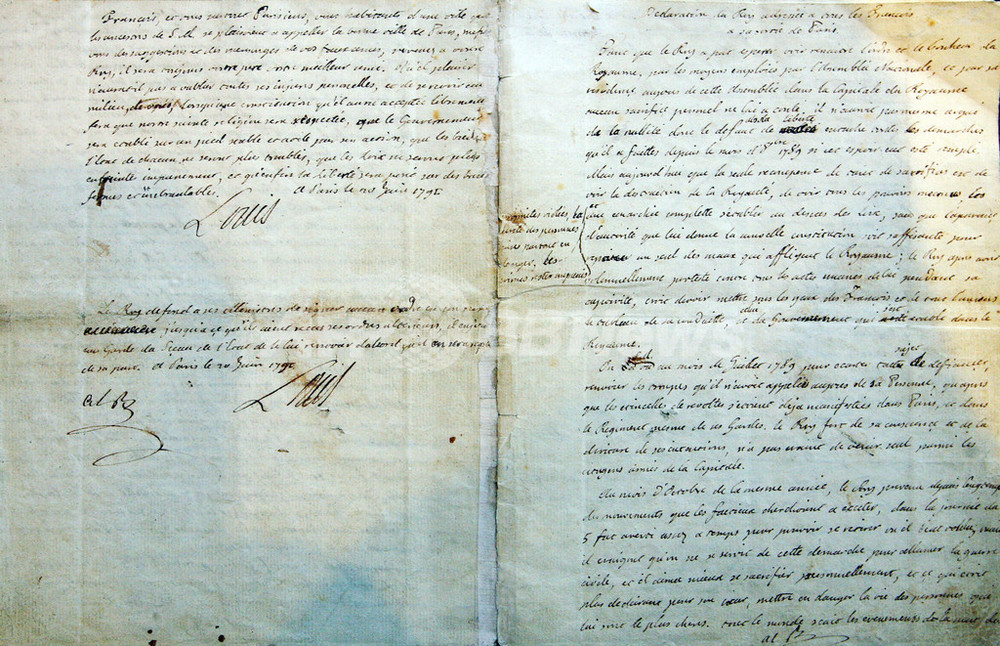 François, et vous surtout Parisiens, vous habitants d'une ville que
les ancestres de S.M. se plaisoient a appeller la bonne ville de Paris, mefiez
vous des suggestions et des mensonges de vos faux amis, revenez a votre
Roy, il sera toujours votre pere, votre meilleur ami. Quel plaisir
n'aura-t-il pas a oublier toutes ses injures personelles, et de se revoir au
milieu de vous, lorsqu'une constitution qu'il aura acceptée librement
fera que notre sainte religion sera respectée, que le Gouvernement
sera etabli sur un pied stable et par son action, que les biens
l'etat de chacun ne seront plus troublés, que les loix ne seront plus
enfreintes impunement, et qu'enfin la liberté sera posée sur des bases
fermes et inebranlables.
a Paris le 20 Juin 1791
Louis
Le Roy defend a ses ministres de signer aucun ordre en son nom
jusqu'a ce qu'ils aient recus ses ordres ulterieurs, il enjoint
au Garde du Sceau de l'Etat de le lui renvoyer d'abord qu'il en sera requis
de sa part. a Paris le 20 Juin 1791
Louis
Declaration du Roy adressée a tous les François
a sa sortie de Paris.
Tant que le Roy a pu esperer voir renaitre l'ordre et le bonheur du
Royaume, par les moyens employés par l'Assemblée Nationale, et par sa
residence aupres de cette Assemblée dans la Capitale du Royaume
aucun sacrifice personel ne lui a couté, il n'auroit pas mesme argué
de la nullité dont le defaut de liberté entache toutes les demarches
qu'il a faittes depuis le mois d'8bre 1789 si cet espoir eut eté rempli.
Mais aujourd'hui que la seule recompense de tant de sacrifices est de
voir la destruction de la Royauté, de voir tous les pouvoirs meconnus, les
proprietés violées, la
sureté des personnes
mise partout en
danger, les
crimes rester impunis
et une anarchie complette s'etablir au dessus des loix, sans que l'apparence
d'autorité que lui donne la nouvelle constitution soit suffisante pour
reparer un seul des maux qui affligent le Royaume; le Roy apres avoir
solemnellement protesté contre tous les actes emanés de lui pendant sa
captivité, croit devoir mettre sous les yeux des François et de tout l'univers
le tableau de sa conduitte, et celui du Gouvernement qui s'est etabli dans le
Royaume.
On l'a vu au mois de Juillet 1789 pour ecarter tout sujet de defiance,
renvoier les troupes qu'il n'avoit appellé aupres de sa Personne, qu'apres
que les etincelles de revoltes s'etoient deja manifestées dans Paris, et dans
le Regiment mesme de ses Gardes. le Roy fort de sa conscience et de la
droiture de ses intentions, n'a pas craint de venir seul parmi les
citoyens armés de la Capitale.
Au mois d'Octobre de la mesme année, le Roy prevenu depuis longtemps
des mouvements que les factieux cherchoient a exciter, dans la journée du
5 fut averti assez a temps pour pouvoir se retirer ou il eut voulu, mais
il craignit qu'on ne se servit de cette demarche pour allumer la guerre
civile, et il aima mieux se sacrifier personnellement, et ce qui etoit
plus dechirant pour son cœur, mettre en danger la vie des personnes qui
lui sont le plus cheres. tout le monde scait les evenements de la nuit du